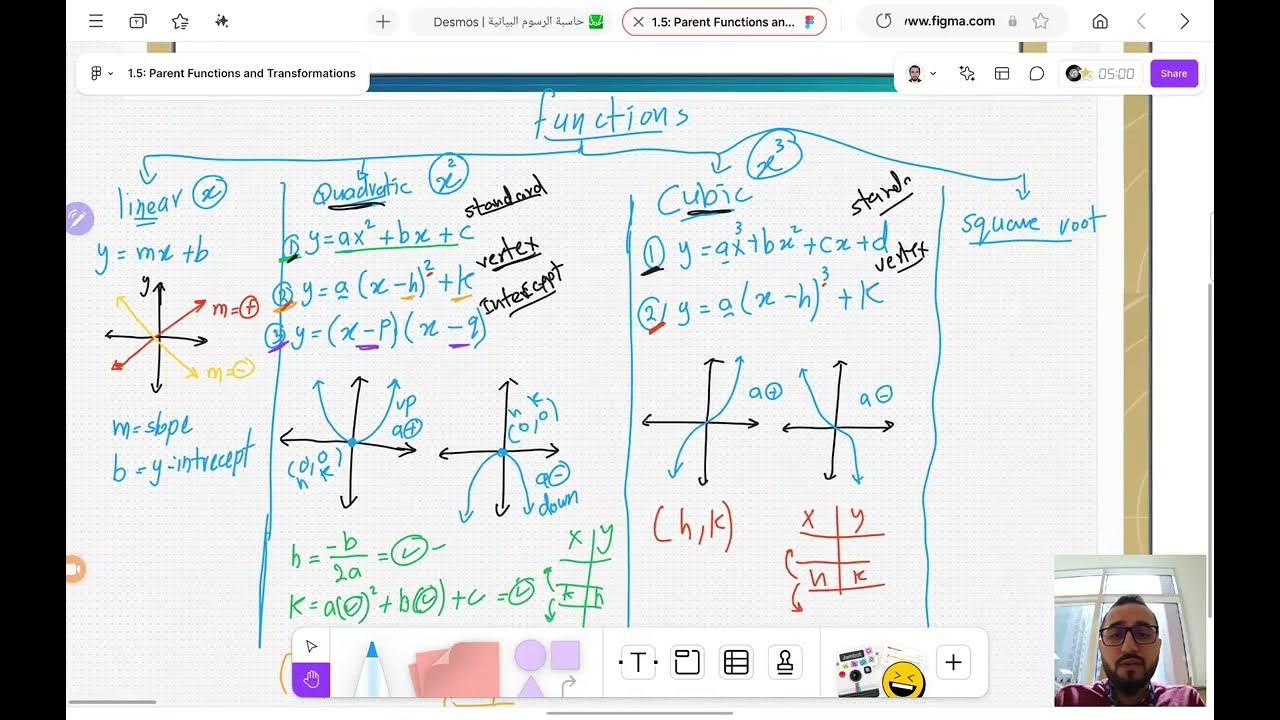 Desmos | حاسبة الرسوم البيانية
1.5: Parent Functions an...
www.figma.com
1.5: Parent Functions and Transformations
05:00
Share
functions
linear x
y = mx + b
y
m = +
m = -
m = slope
b = y-intrecept
Quadratic x²
standard
1 y = ax² + bx + c
vertex
2 y = a (x - h)² + k
Intercept
3 y = (x - p) (x - q)
up
a +
(0, 0)
h k
h k
(0, 0)
a -
down
h = -b/2a = ✓ -
x y
k = a( )² + b( ) + c = ✓
k h
Cubic x³
1 y = ax³ + bx² + cx + d
vertex
2 y = a (x - h)³ + k
a +
a -
(h, k)
x y
h k
square root
T